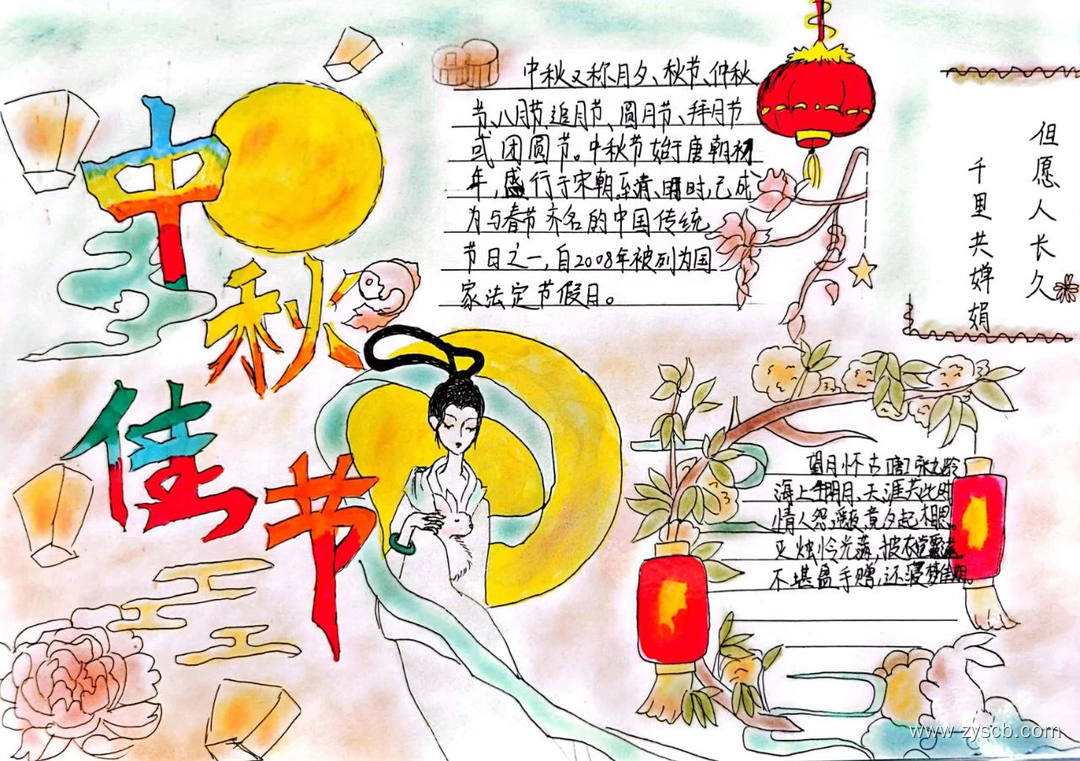 中秋佳节
中秋又称月夕、秋节、仲秋
节、八月节、追月节、圆月节、拜月节
或团圆节。中秋节始于唐朝初
年,盛行于宋朝,至清、明时,已成
为与春节齐名的中国传统
节日之一,自2008年被列为国
家法定节假日。
但愿人长久
千里共婵娟
望月怀古 唐 张九龄
海上生明月、天涯共此时
情人怨遥夜,竟夕起相思。
灭烛怜光满,披衣觉露滋。
不堪盈手赠,还寝梦佳期。
www.zyscb.com